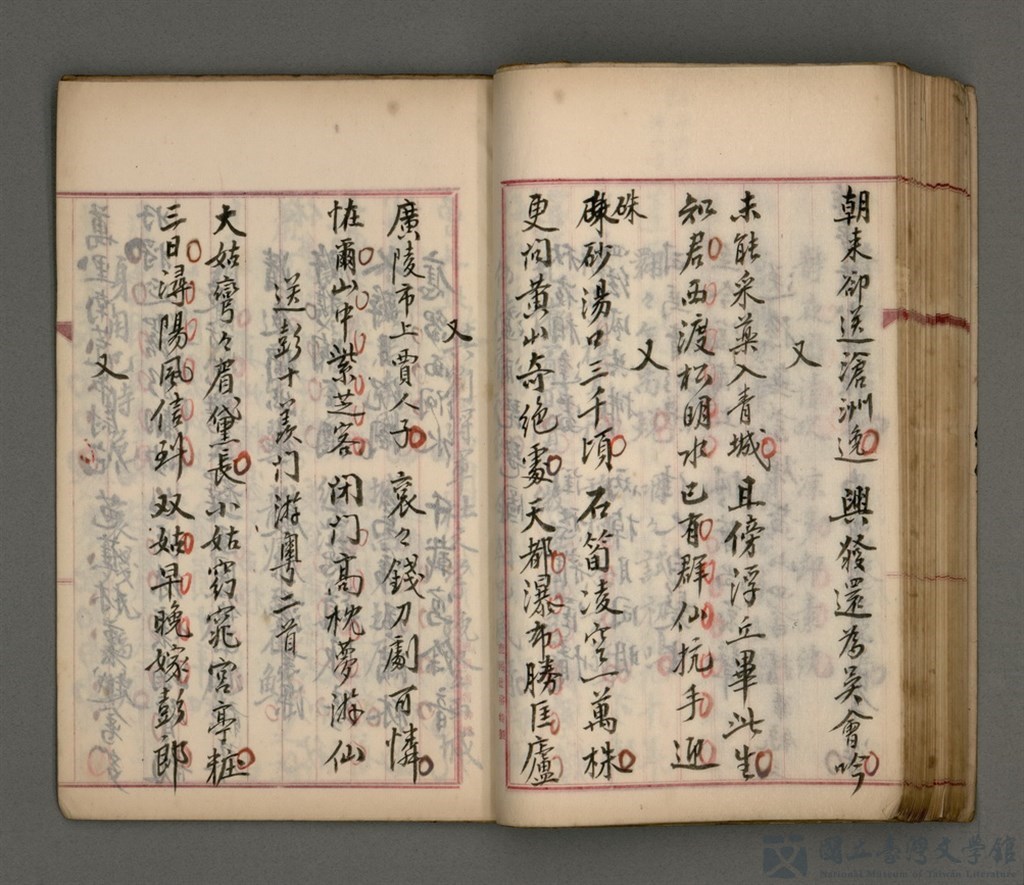 朝来卻送滄洲逸 興發還為吳會吟
又
未能采藥入青城 且傍浮丘畢此生
知君西渡松明水 已有群仙抗手迎
又
硃
砂湯口三千頃 石筍凌空一萬株
更问黄山奇绝處 天都瀑布勝匡廬
又
廣陵市上賈人子 衮々錢刀劇可憐
怪爾山中紫芝客 闭门高枕夢游仙
送彭十羨门游粤二首
大姑彎々眉黛長 小姑窈窕宫亭粧
三日潯陽風信到 双姑早晚嫁彭郎
又
國立臺灣文學館
National Museum of Taiwan Literature